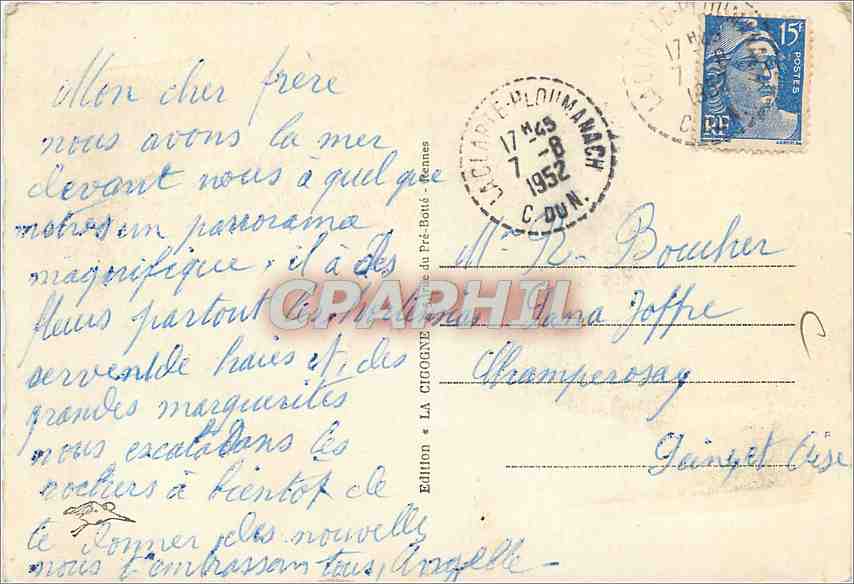 Mon cher frère
nous avons la mer
devant nous à quel que
metres un panorama
magnifique, il à des
fleurs partout les hortensias
servent de haies et, des
grandes marguerites
nous escaladons les
rochers à bientot de
te donner des nouvelles
nous t'embrassons tous, Angèle
Edition « LA CIGOGNE » du Pré-Botté - Rennes
CPAPHIL
LA CLARTE-PLOUMANACH
17 H 45
7 -8
1952
C. DU N.
15F
POSTES
RF
Mr R. Boucher
Joffre
Champrosay
Seine et Oise